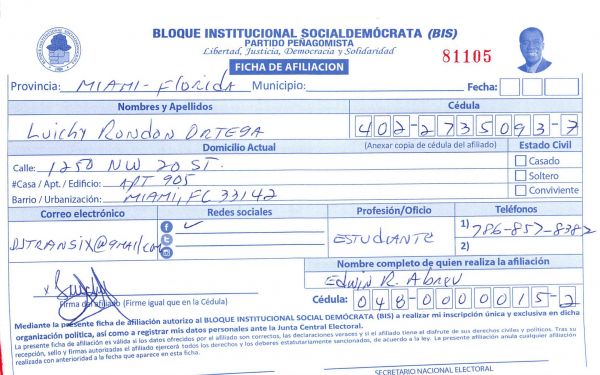 BLOQUE INSTITUCIONAL SOCIALDEMÓCRATA (BIS)
PARTIDO PEÑAGOMISTA
Libertad, Justicia, Democracia y Solidaridad
FICHA DE AFILIACION
81105
Provincia: MIAMI-Florida Municipio: Fecha:
Nombres y Apellidos Cédula
Luichy Rondon ORTEGA 402-2735093-7
Domicilio Actual (Anexar copia de cédula del afiliado) Estado Civil
Calle: 1250 NW 20 ST. Casado
#Casa / Apt. / Edificio: APT 905 Soltero
Barrio / Urbanización: MIAMI, FC 33142 Conviviente
Correo electrónico Redes sociales Profesión/Oficio Teléfonos
DJTRANSIX@gmail.com ESTUDIANTE 1) 786-857-8382
2)
Nombre completo de quien realiza la afiliación
Edwin R. Abreu
Firma del afiliado (Firme igual que en la Cédula) Cédula: 048-0000015-2
Mediante la presente ficha de afiliación autorizo al BLOQUE INSTITUCIONAL SOCIAL DEMÓCRATA (BIS) a realizar mi inscripción única y exclusiva en dicha
organización política, así como a registrar mis datos personales ante la Junta Central Electoral.
La presente ficha de afiliación es válida si los datos ofrecidos por el afiliado son correctos, las declaraciones veraces y si el afiliado tiene al disfrute de sus derechos civiles y políticos. Tras su
recepción, sello y firmas autorizadas el afiliado ejercerá todos los derechos y los deberes estatutariamente sancionados, de acuerdo a la ley. La presente afiliación anula cualquier afiliación
realizada con anterioridad a la fecha que aparece en esta ficha.
SECRETARIO NACIONAL ELECTORAL